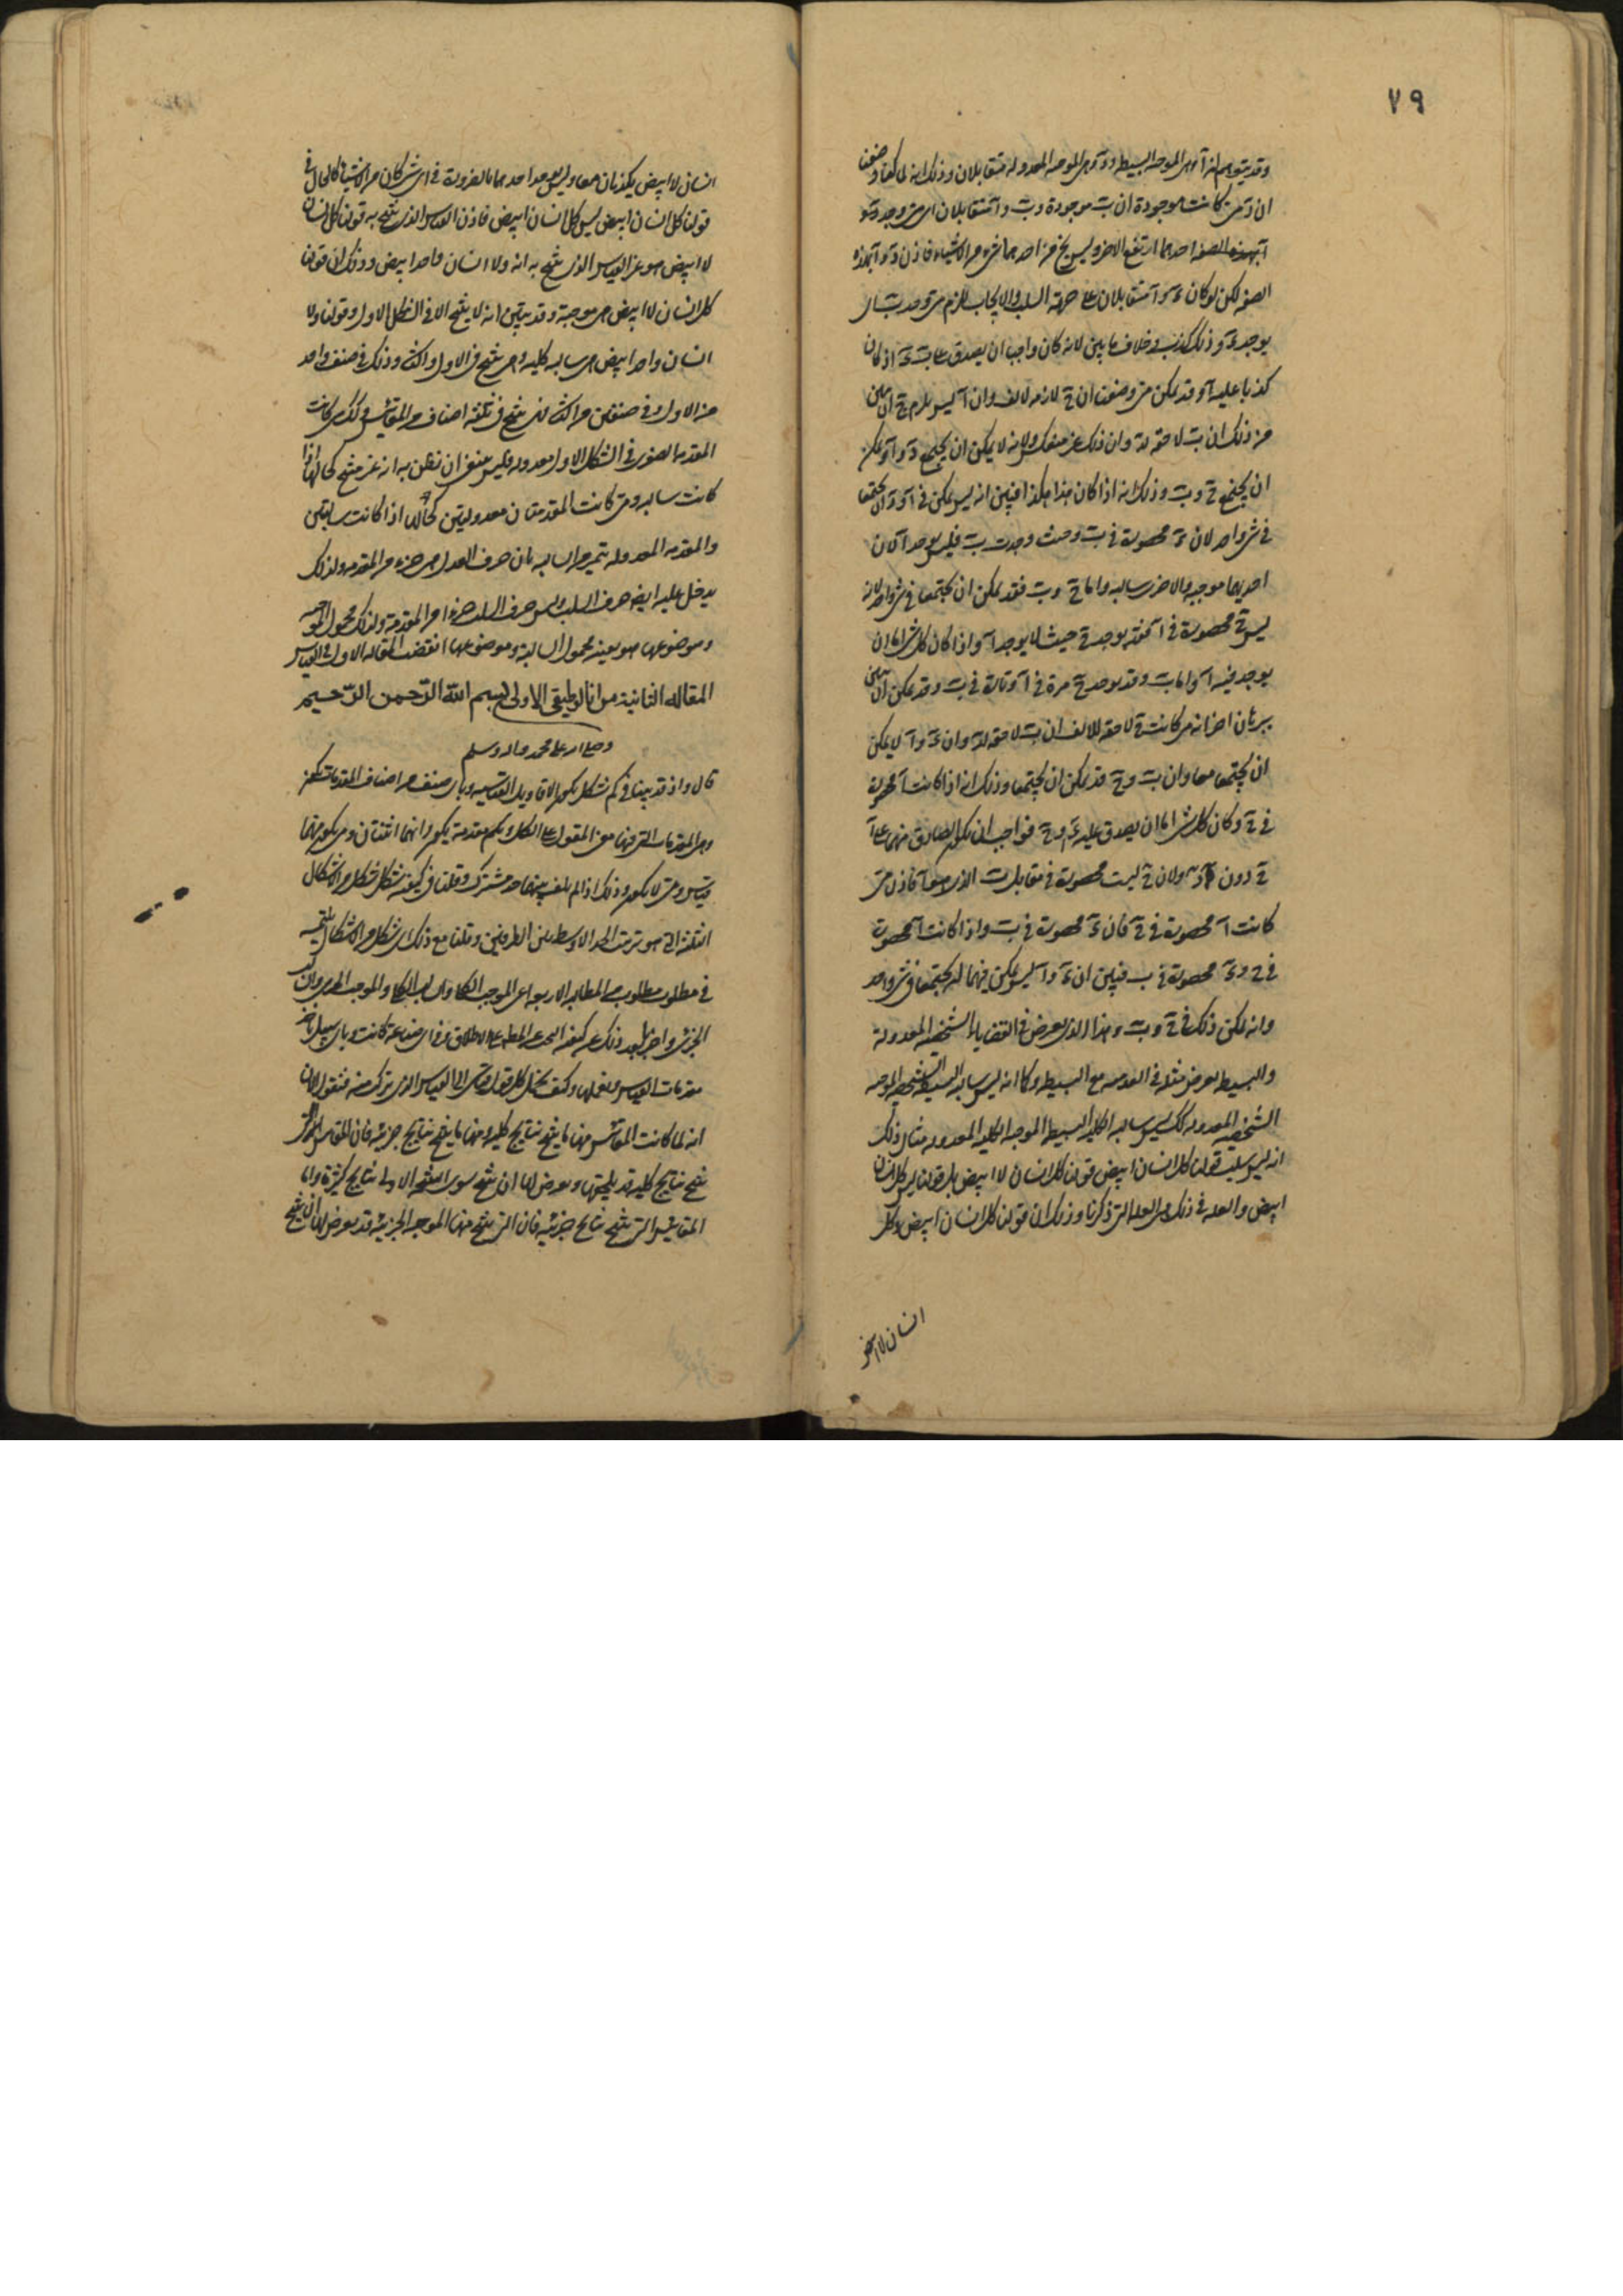 ٧٩
وقد يتوهم ان آ وهى الموجبه البسيطه و دَ وهى الموجبه المعدوله متقابلان وذلك انه لما كنا وضعنا
ان دَ متى كانت موجودة ان بَ موجودة و بَ و آ متقابلان اى متى وجد
آ بهذه الصفه احدهما ارتفع الاخر وليس يخ من احدهما شىء من الاشياء فاذن دَ و آ بهذه
الصفه لكن لو كان دَ و آ متقابلان على جهة السلب والايجاب للزم متى وجد بَ ان
يوجد دَ وذلك كذب وخلاف ما بين لانه كان واجب ان يصدق على بَ دَ اذ كان
كذبا عليه آ وقد يمكن متى وضعت ان جَ لازمه لالف وان آ ليس يلزم جَ ان يبين
من ذلك ان بَ لاحقه لدَ وان ذلك غير منعكس ولانه لا يمكن ان يجتمع دَ و آ ويمكن
ان يجتمع جَ و بَ وذلك انه اذا كان هذا هكذا فبين انه ليس يمكن فى آ و دَ ان يجتمعا
فى شى واحد لان دَ محصورة فى بَ وحيث وجدت بَ فليس يوجد آ لان
احديهما موجبه والاخرى سالبه واما جَ و بَ فقد يمكن ان يجتمعا فى شى واحد لانه
ليس جَ محصورة فى آ فقد يوجد جَ حيث لا يوجد آ واذا كان كل شى اما ان
يوجد فيه آ واما بَ وقد يوجد جَ مرة فى آ وتارة فى بَ وقد يمكن ان يبين
ببرهان اخر انه متى كانت جَ لاحقه للالف ان بَ لاحقه لدَ وان دَ و آ لا يمكن
ان يجتمعا معا وان بَ و جَ قد يمكن ان يجتمعا وذلك انه اذا كانت آ محصورة
فى جَ وكان كل شى اما ان يصدق عليه دَ او جَ فواجب ان يكون الصادق منهما على آ
جَ دون دَ ولان جَ ليست محصورة فى مقابل بَ الذى هو آ فاذن متى
كانت آ محصورة فى جَ فان دَ محصورة فى بَ واذا كانت آ محصورة
فى جَ و دَ محصورة فى ب فبين ان دَ و آ ليس يمكن فيهما ان يجتمعا فى شى واحد
وانه يمكن ذلك فى جَ و بَ وهذا الذى يعرض فى القضايا الشخصيه المعدولة
والبسيطه يعرض مثله فى العدميه مع البسيطه وكما انه ليس سالبه البسيطه الشخصيه الموجبه
الشخصيه المعدوله كك ليس سالبه الكليه البسيطه الموجبه الكليه المعدوله مثال ذلك
انه ليس سلب قولنا كل انسان ابيض قولنا كل انسان لا ابيض بل قولنا ليس كل انسان
ابيض والعله فى ذلك هى العله التى ذكرنا وذلك ان قولنا كل انسان ابيض وكل
انسان لا ابيض
انسان لا ابيض يكذبان معا وليس يوجد احدهما بالضرورة فى اى شى كان من الاشيا كالحال فى
قولنا كل انسان ابيض ليس كل انسان ابيض فاذن القياس الذى ينتج به قولنا كل انسان
لا ابيض هو غير القياس الذى ينتج به انه ولا انسان واحد ابيض وذلك ان قولنا
كل انسان لا ابيض هى موجبة وقد تبين انه لا ينتج الا فى الشكل الاول وقولنا ولا
انسان واحد ابيض هى سالبه كليه وهى تنتج فى الاول والثانى وذلك فى صنف واحد
من الاول وفى صنفين من الثانى فهى تنتج فى ثلثه اصناف من المقائيس وكك متى كانت
المقدمه الصغرى فى الشكل الاول معدوله فليس ينبغى ان نظن به انه غير منتج كحالها اذا
كانت سالبه ومتى كانت المقدمتان معدولتين كحالهما اذا كانت سالبتين
والمقدمه المعدوله تتميز من السالبه بان حرف العدل هى جزء من المقدمه ولذلك
يدخل عليه ايضا حرف السلب وليس حرف السلب جزءا من المقدمة ولذلك محمول الموجبه
وموضوعها هو بعينه محمول السالبة وموضوعها انقضت المقاله الاولى فى القياس
المقاله الثانية من انالوطيقى الاولى بسم الله الرّحمن الرّحيم
وصلى الله على محمد واله وسلم
قال واذ قد بينا فى كم شكل يكون الاقاويل القياسيه وباى صنف من اصناف المقدمات يكون
وهى المقدمات التى فيها معنى المقول على الكل وبكم مقدمة يكون وانها اثنتان ومتى يكون منهما
قياس ومتى لا يكون وذلك اذا لم يلف بينهما حد مشترك وقلنا فى كيفيه شكل شكل من الاشكال
الثلثه التى هو ترتيب الحد الاوسط من الطرفين وقلنا مع ذلك اى شكل من الاشكال ملتمسه
فى مطلوب مطلوب من المطالب الاربعه اعنى الموجب الكلى والسالب الكلى والموجب الجزئى والسالب
الجزئى واخبرنا بعد ذلك عن كيفيه البحث عن المط على الاطلاق فى اى صناعة كانت وباى سبيل ناخذ
مقدمات القياس ونعملها وكيف نحلل كل قول قياسى الى القياس الذى تركب منه فنقول الان
انه لما كانت المقائيس منها ما ينتج نتايج كليه ومنها ما ينتج نتايج جزئيه فان المقائيس التى
تنتج نتايج كليه قد يلحقها ويعرض لها ان تنتج سوى النتيجه الاولى نتايج كثيرة واما
المقائيس التى تنتج نتايج جزئيه فان التى تنتج منها الموجبه الجزئيه قد يعرض لها ان تنتج